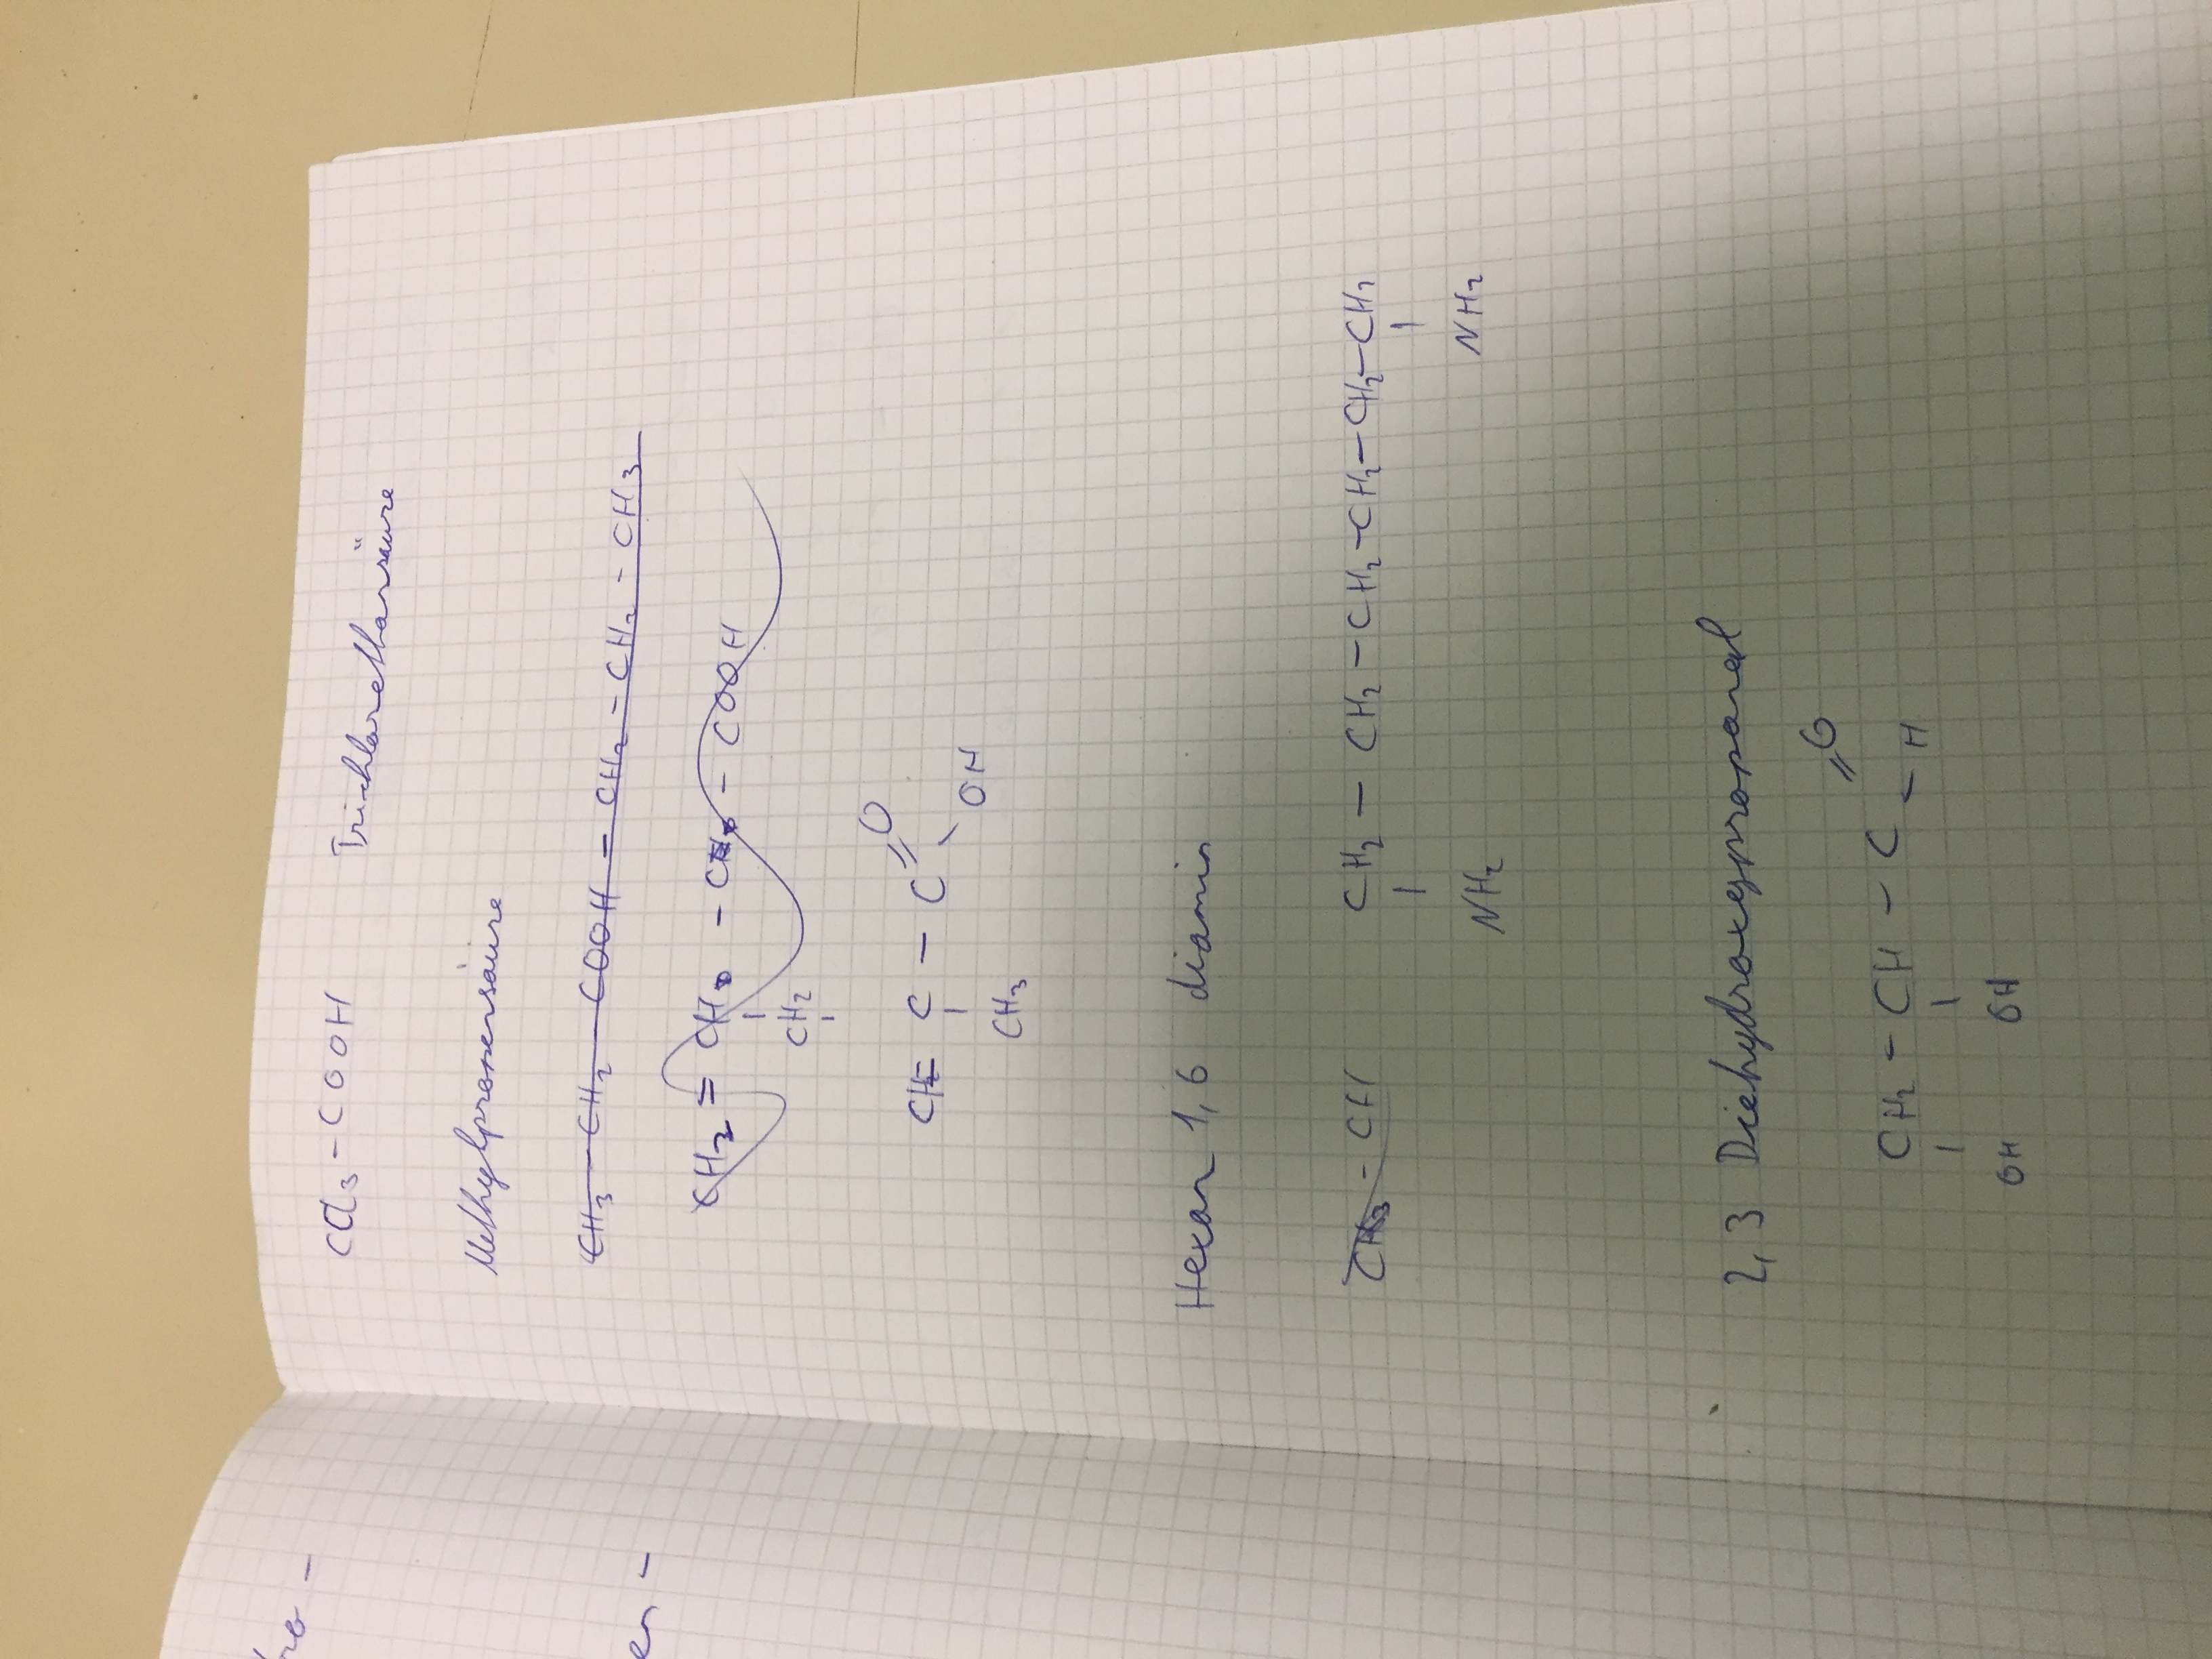 ro -
en -
CCl₃-COOH Trichlorethansäure
Methylpropensäure
CH₃ - CH₂ - COOH - CH₂ - CH₂ - CH₃
CH₂ = CH - C - COOH
|
CH₂
|
O
//
C - C
\
OH
|
CH₃
Hexan 1,6 diamin
CH₃ - CH CH₂ - CH₂ - CH₂ - CH₂ - CH₂ - CH₂
| |
NH₂ NH₂
2,3 Diehydroxypropanal
O
//
CH₂ - CH - C
- H
| |
OH OH